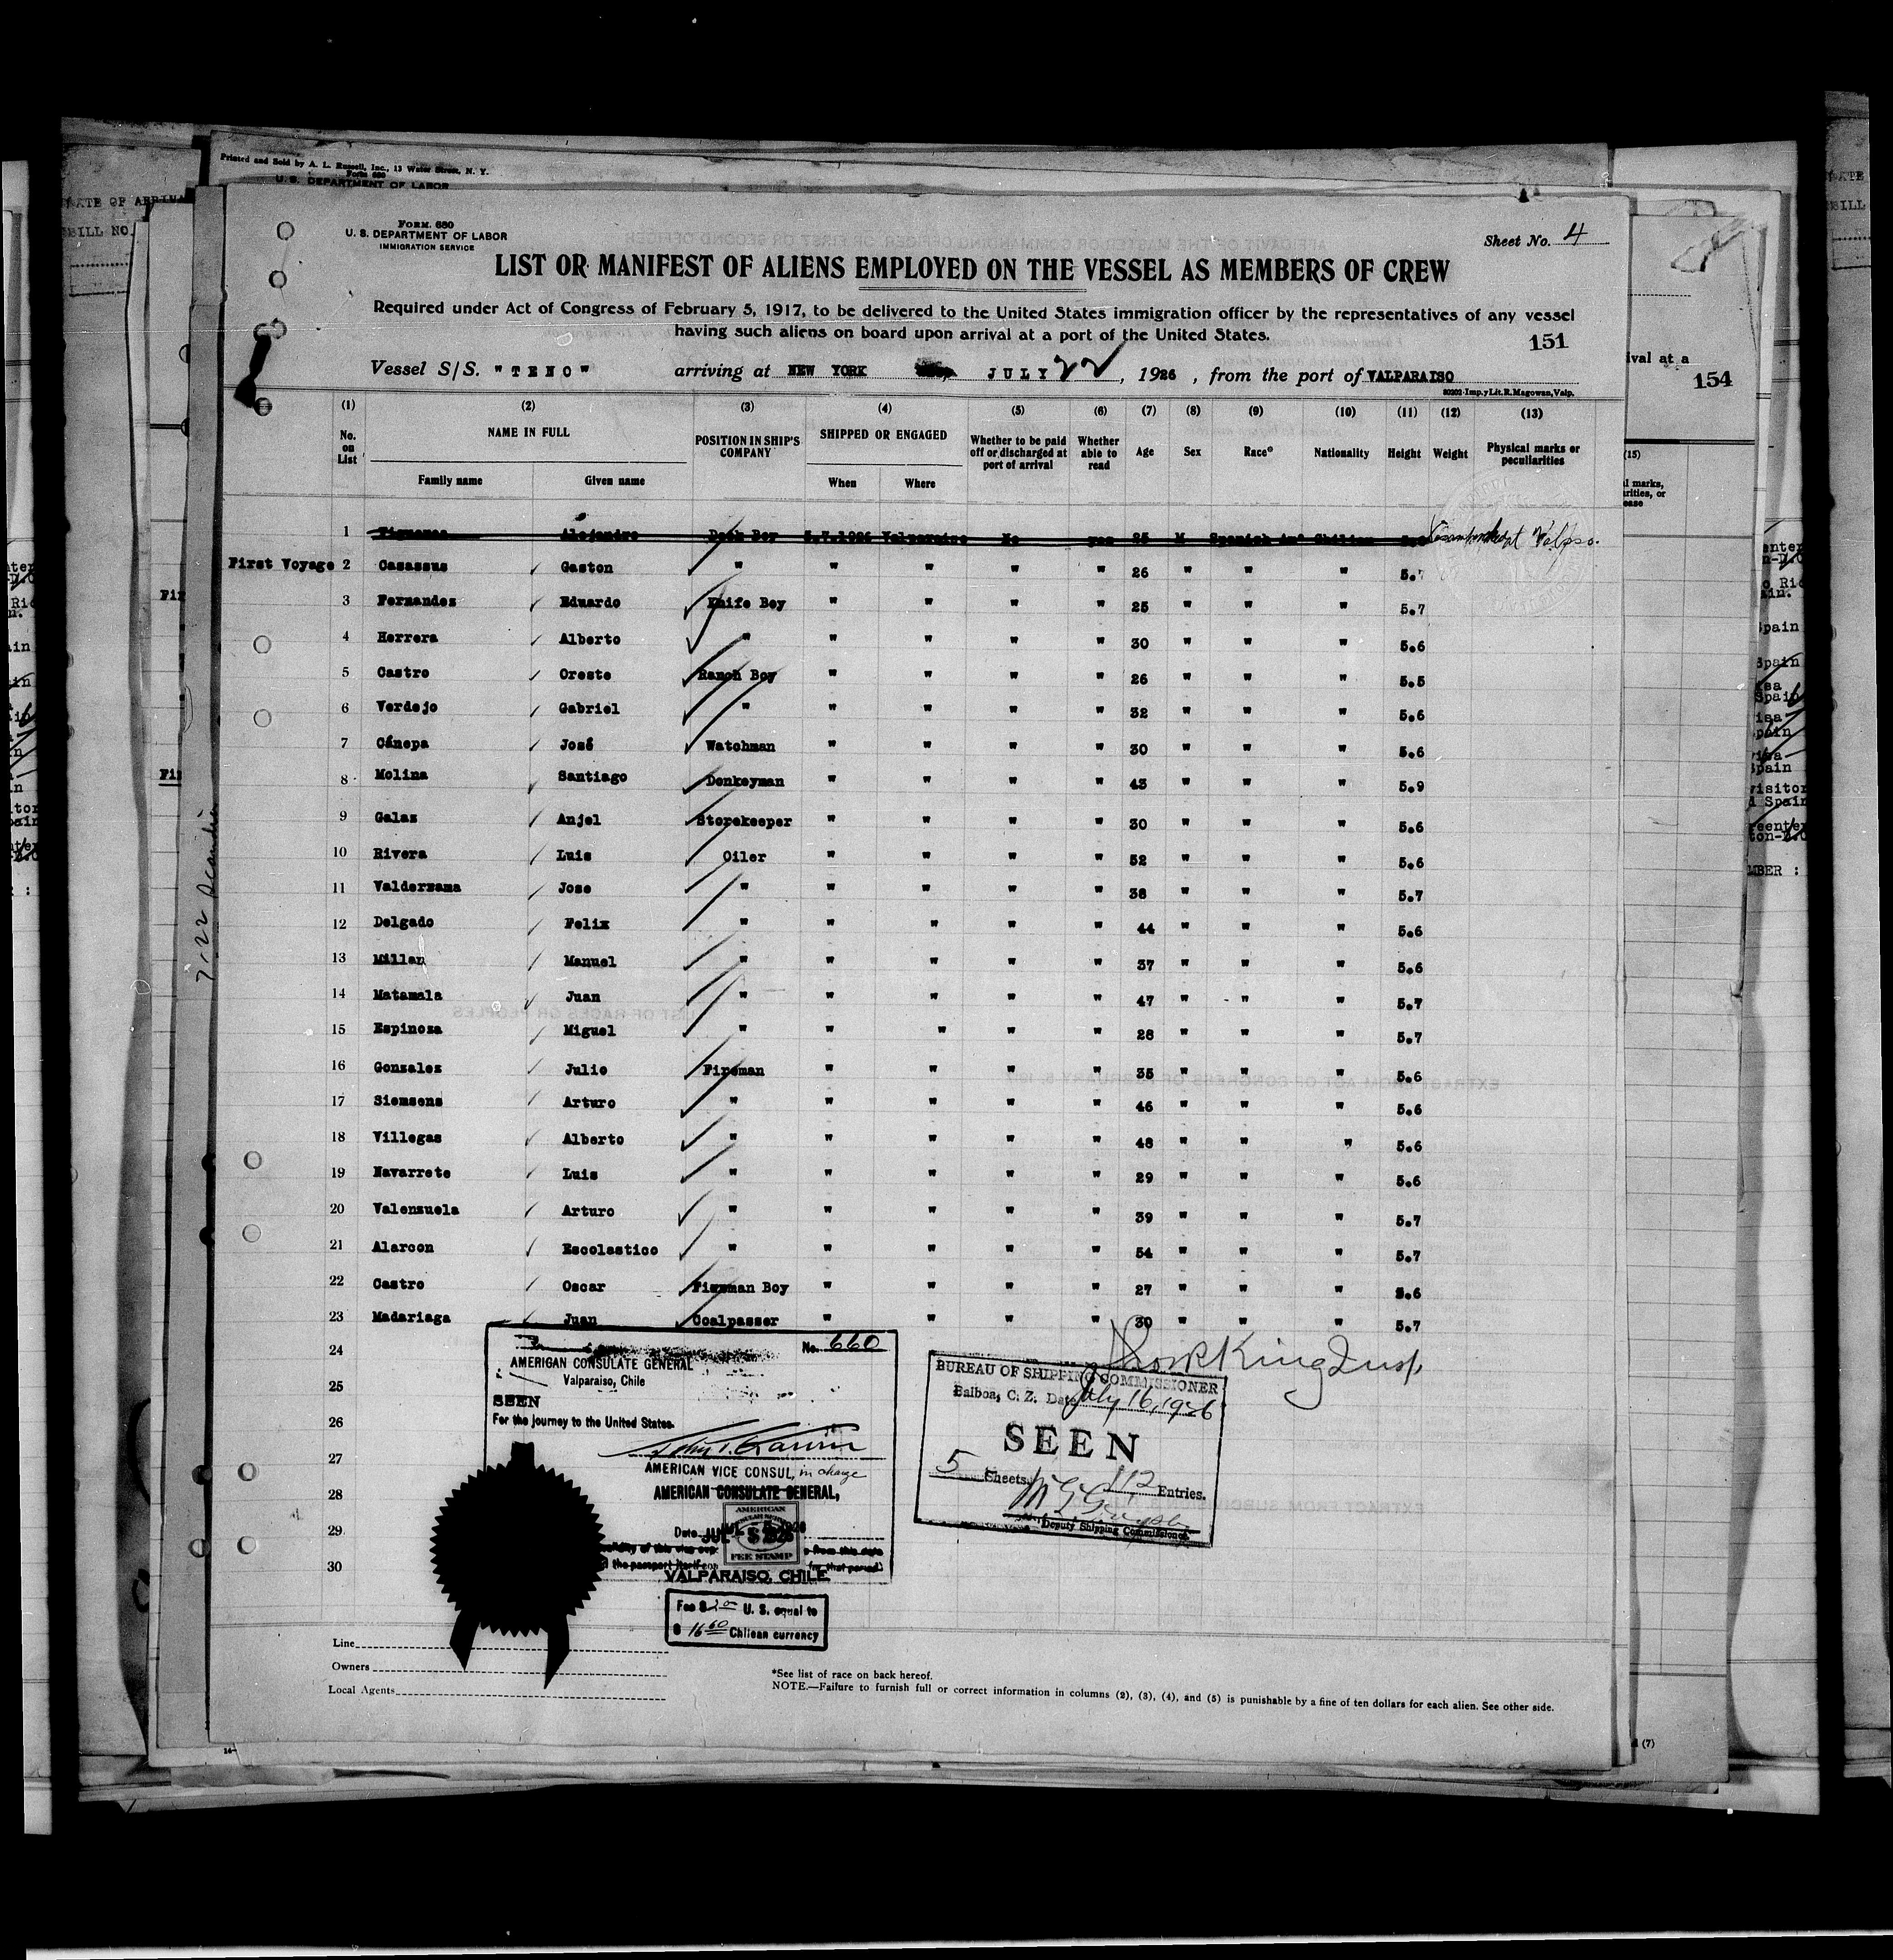 Printed and Sold by A. L. Russell, Inc., 13 Water Street, N. Y.
Form 680
U. S. DEPARTMENT OF LABOR
FORM. 680
U. S. DEPARTMENT OF LABOR
IMMIGRATION SERVICE
Sheet No. 4
LIST OR MANIFEST OF ALIENS EMPLOYED ON THE VESSEL AS MEMBERS OF CREW
Required under Act of Congress of February 5, 1917, to be delivered to the United States immigration officer by the representatives of any vessel
having such aliens on board upon arrival at a port of the United States.
151
Vessel S/S. "TENO" arriving at NEW YORK JULY 22, 1926, from the port of VALPARAISO
80202-Imp.y Lit.R.Magowan,Valp.
(1) (2) (3) (4) (5) (6) (7) (8) (9) (10) (11) (12) (13)
No. on List NAME IN FULL POSITION IN SHIP'S COMPANY SHIPPED OR ENGAGED Whether to be paid off or discharged at port of arrival Whether able to read Age Sex Race* Nationality Height Weight Physical marks or peculiarities
Family name Given name When Where
1 Alejandro Deck Boy 5.7.1926 Valparaiso No yes 25 M Spanish Am" Chilian at Valpso.
First Voyage 2 Casassus Gaston " " " " " 26 " " " 5.7
3 Fernandez Eduardo Knife Boy " " " " 25 " " " 5.7
4 Herrera Alberto " " " " " 30 " " " 5.6
5 Castro Oreste Ranch Boy " " " " 26 " " " 5.5
6 Verdejo Gabriel " " " " " 32 " " " 5.6
7 Cánepa José Watchman " " " " 30 " " " 5.6
8 Molina Santiago Donkeyman " " " " 43 " " " 5.9
9 Galaz Anjel Storekeeper " " " " 30 " " " 5.6
10 Rivera Luis Oiler " " " " 52 " " " 5.6
11 Valderrama Jose " " " " " 38 " " " 5.7
12 Delgado Felix " " " " " 44 " " " 5.6
13 Millan Manuel " " " " " 37 " " " 5.6
14 Matamala Juan " " " " " 47 " " " 5.7
15 Espinoza Miguel " " " " " 28 " " " 5.7
16 Gonzalez Julio Fireman " " " " 35 " " " 5.6
17 Siemsens Arturo " " " " " 46 " " " 5.6
18 Villegas Alberto " " " " " 48 " " " 5.6
19 Navarrete Luis " " " " " 29 " " " 5.6
20 Valenzuela Arturo " " " " " 39 " " " 5.7
21 Alarcon Escolastico " " " " " 54 " " " 5.7
22 Castro Oscar Fireman Boy " " " " 27 " " " 5.6
23 Madariaga Juan Coalpasser " " " " 30 " " " 5.7
24
25
26
27
28
29
30
No. 660
AMERICAN CONSULATE GENERAL
Valparaiso, Chile
SEEN
For the journey to the United States.
AMERICAN VICE CONSUL, in charge
AMERICAN CONSULATE GENERAL,
AMERICAN
FEE STAMP
Date
VALPARAISO, CHILE
Fee $ 2.00 U. S. equal to
$ 16.60 Chilean currency
King Insp.
BUREAU OF SHIPPING COMMISSIONER
Balboa, C. Z. Date July 16, 1926
SEEN
5 Sheets 112 Entries.
Deputy Shipping Commissioner
Line
Owners
Local Agents
*See list of race on back hereof.
NOTE.—Failure to furnish full or correct information in columns (2), (3), (4), and (5) is punishable by a fine of ten dollars for each alien. See other side.
ival at a
154
(15)